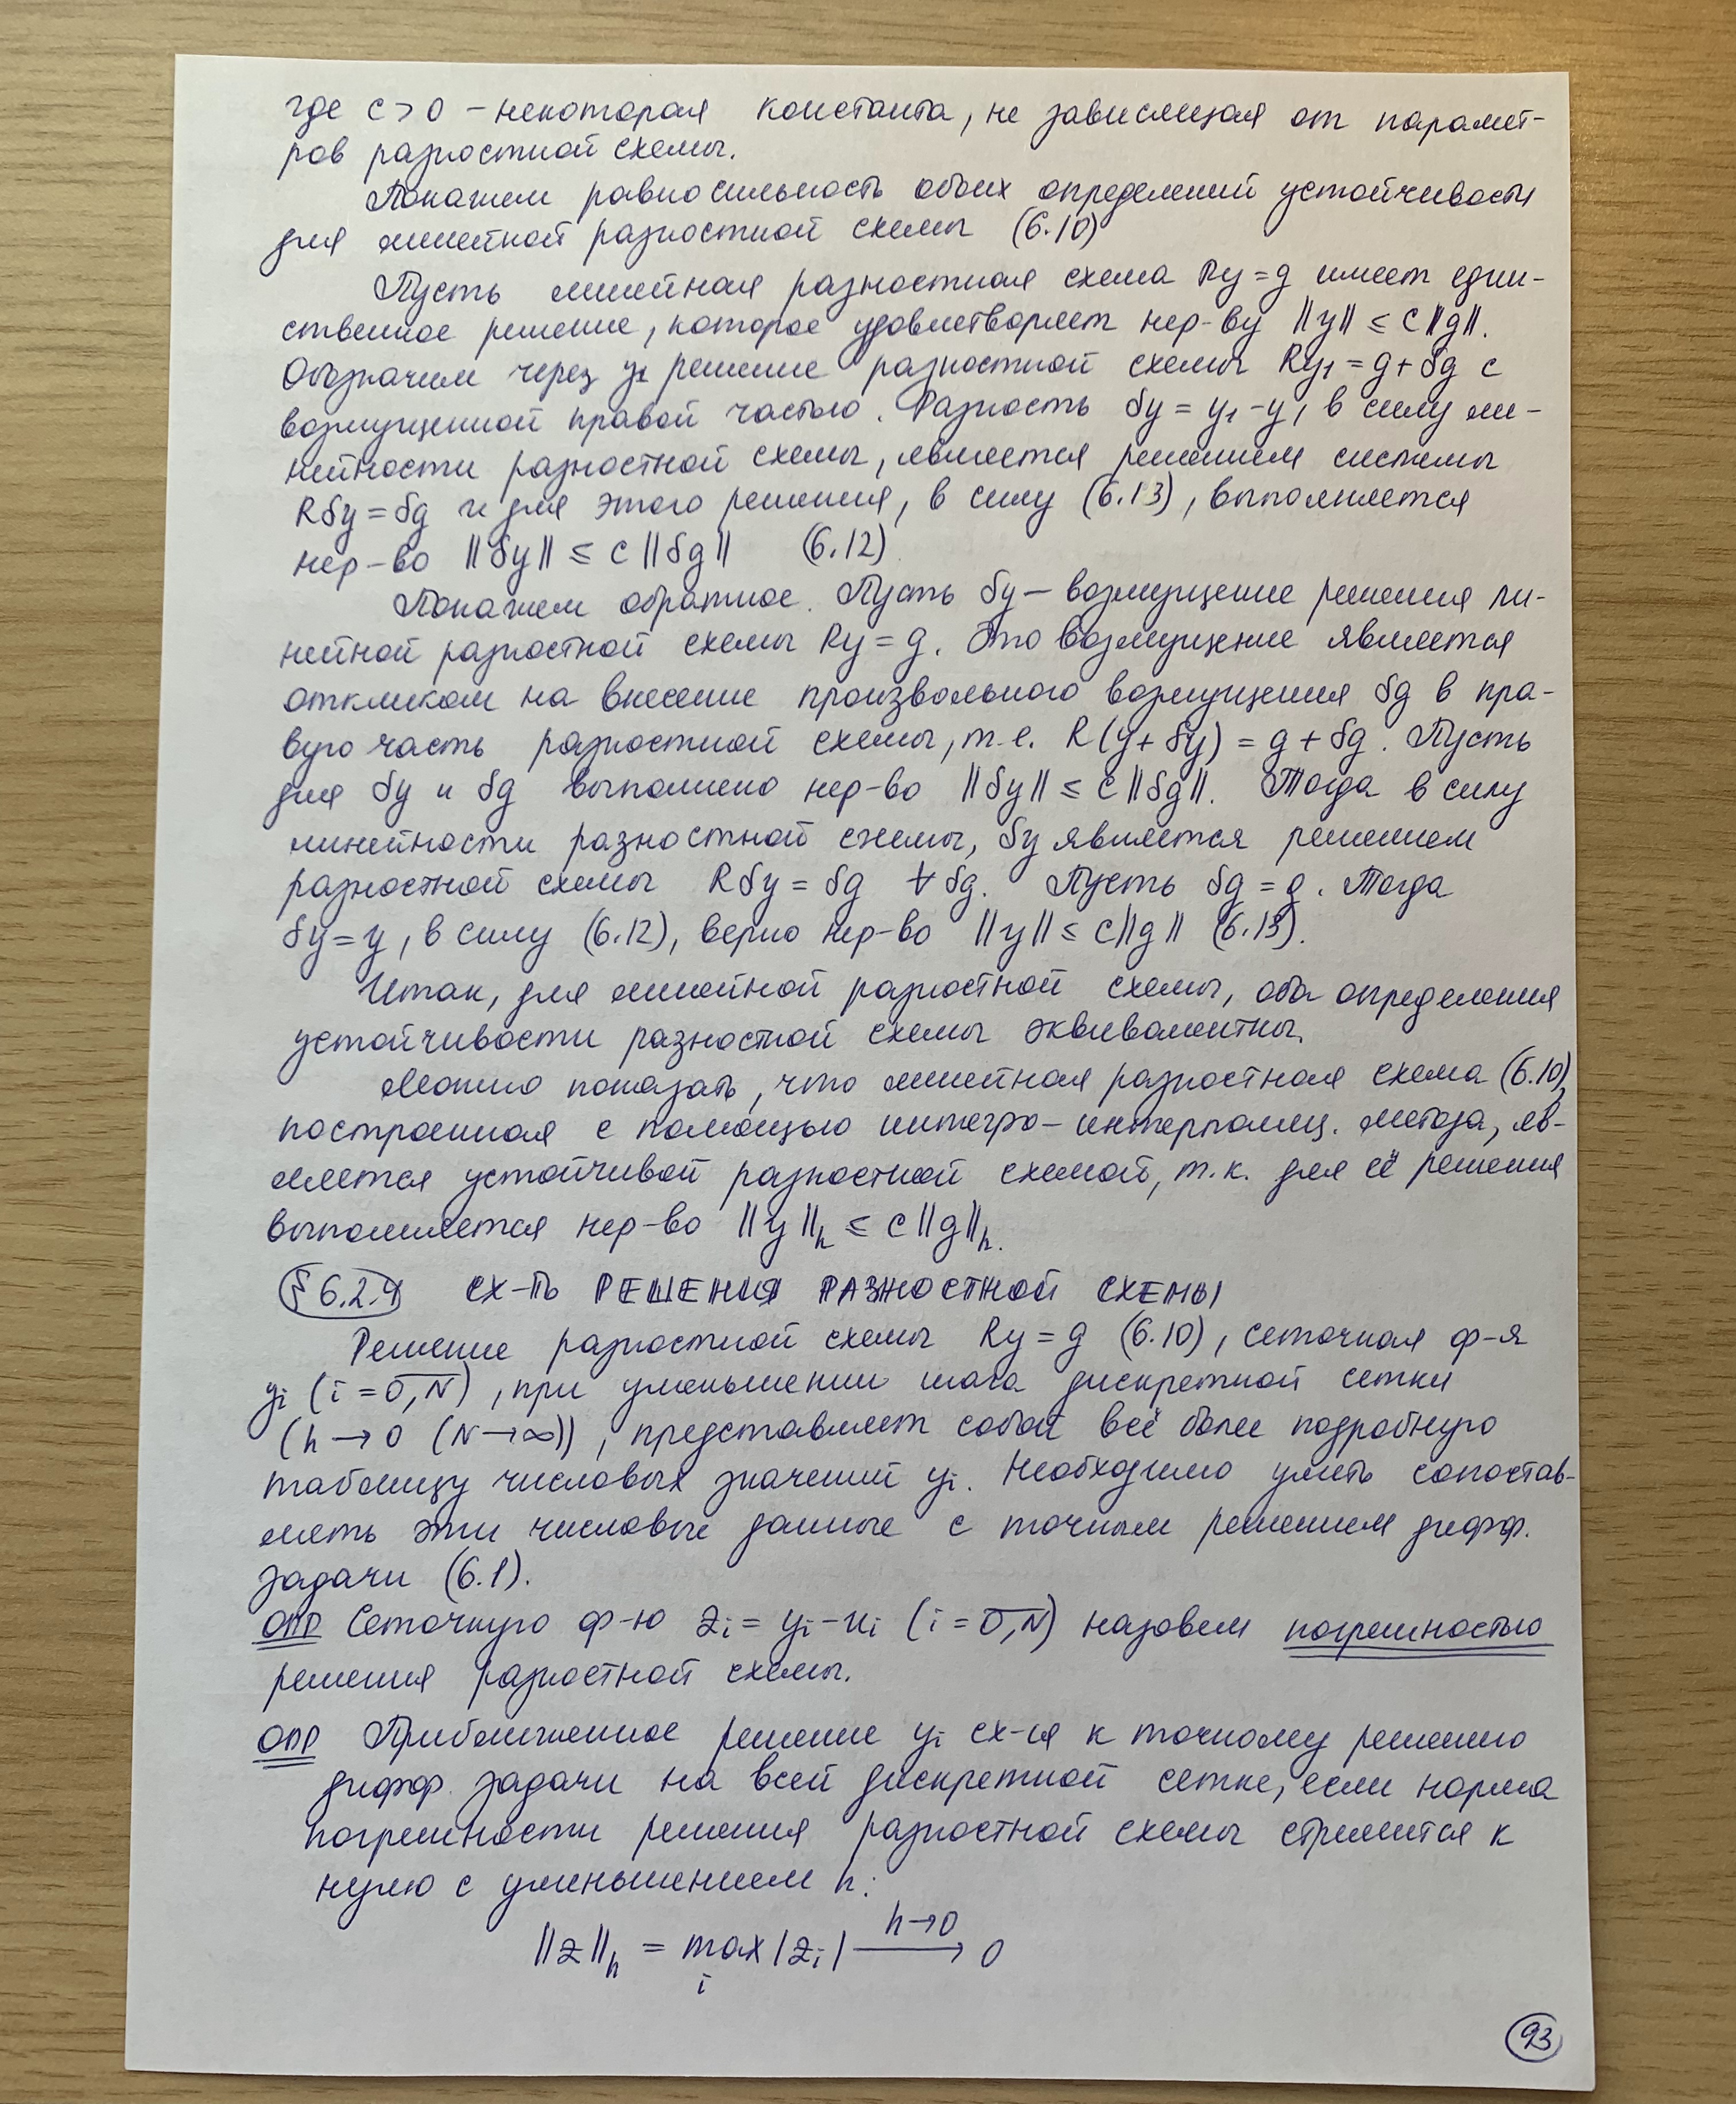 где c > 0 – некоторая константа, не зависящая от парамет-
ров разностной схемы.
Покажем равносильность обоих определений устойчивости
для линейной разностной схемы (6.10)
Пусть линейная разностная схема Ry = g имеет един-
ственное решение, которое удовлетворяет нер-ву ||y|| ≤ c||g||.
Обозначим через y₁ решение разностной схемы Ry₁ = g + δg с
возмущенной правой частью. Разность δy = y₁ - y, в силу ли-
нейности разностной схемы, является решением системы
Rδy = δg и для этого решения, в силу (6.13), выполняется
нер-во ||δy|| ≤ c||δg|| (6.12)
Покажем обратное. Пусть δy – возмущение решения ли-
нейной разностной схемы Ry = g. Это возмущение является
откликом на внесение произвольного возмущения δg в пра-
вую часть разностной схемы, т.е. R(y + δy) = g + δg. Пусть
для δy и δg выполнено нер-во ||δy|| ≤ c||δg||. Тогда в силу
линейности разностной схемы, δy является решением
разностной схемы Rδy = δg ∀ δg. Пусть δg = g. Тогда
δy = y, в силу (6.12), верно нер-во ||y|| ≤ c||g|| (6.13).
Итак, для линейной разностной схемы, оба определения
устойчивости разностной схемы эквивалентны.
Можно показать, что линейная разностная схема (6.10),
построенная с помощью интегро-интерполяц. метода, яв-
ляется устойчивой разностной схемой, т.к. для её решения
выполняется нер-во ||y||ₕ ≤ c||g||ₕ.
§ 6.2.4 СХ-ТЬ РЕШЕНИЯ РАЗНОСТНОЙ СХЕМЫ
Решение разностной схемы Ry = g (6.10), сеточная ф-я
yᵢ (i = 0,N), при уменьшении шага дискретной сетки
(h → 0 (N → ∞)), представляет собой всё более подробную
таблицу числовых значений yᵢ. Необходимо уметь сопостав-
лять эти числовые данные с точным решением дифф.
задачи (6.1).
ОПР Сеточную ф-ю zᵢ = yᵢ - uᵢ (i = 0,N) назовем погрешностью
решения разностной схемы.
ОПР Приближенное решение yᵢ сх-ся к точному решению
дифф. задачи на всей дискретной сетке, если норма
погрешности решения разностной схемы стремится к
нулю с уменьшением h:
h→0
||z||ₕ = max |zᵢ| ⟶ 0
i
93